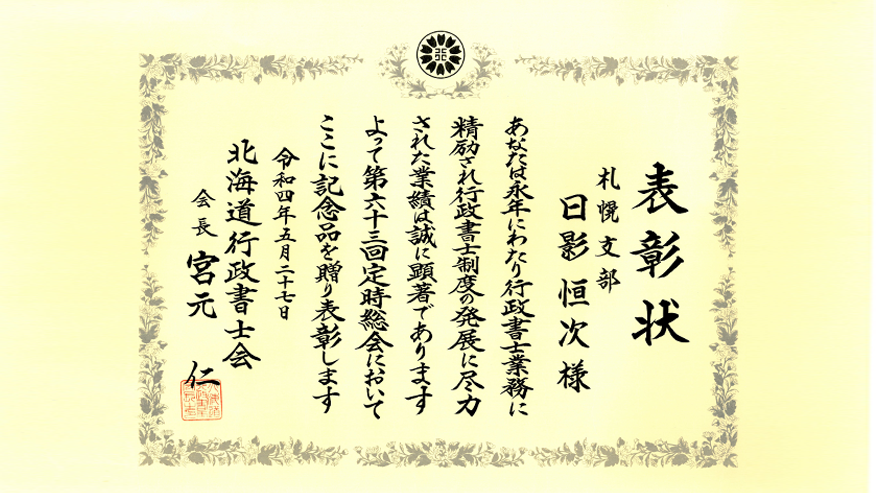 表彰状
札幌支部
日影恒次様
あなたは永年にわたり行政書士業務に
精励され行政書士制度の発展に尽力
された業績は誠に顕著であります
よって第六十三回定時総会において
ここに記念品を贈り表彰します
令和四年五月二十七日
北海道行政書士会
会長 宮元 仁